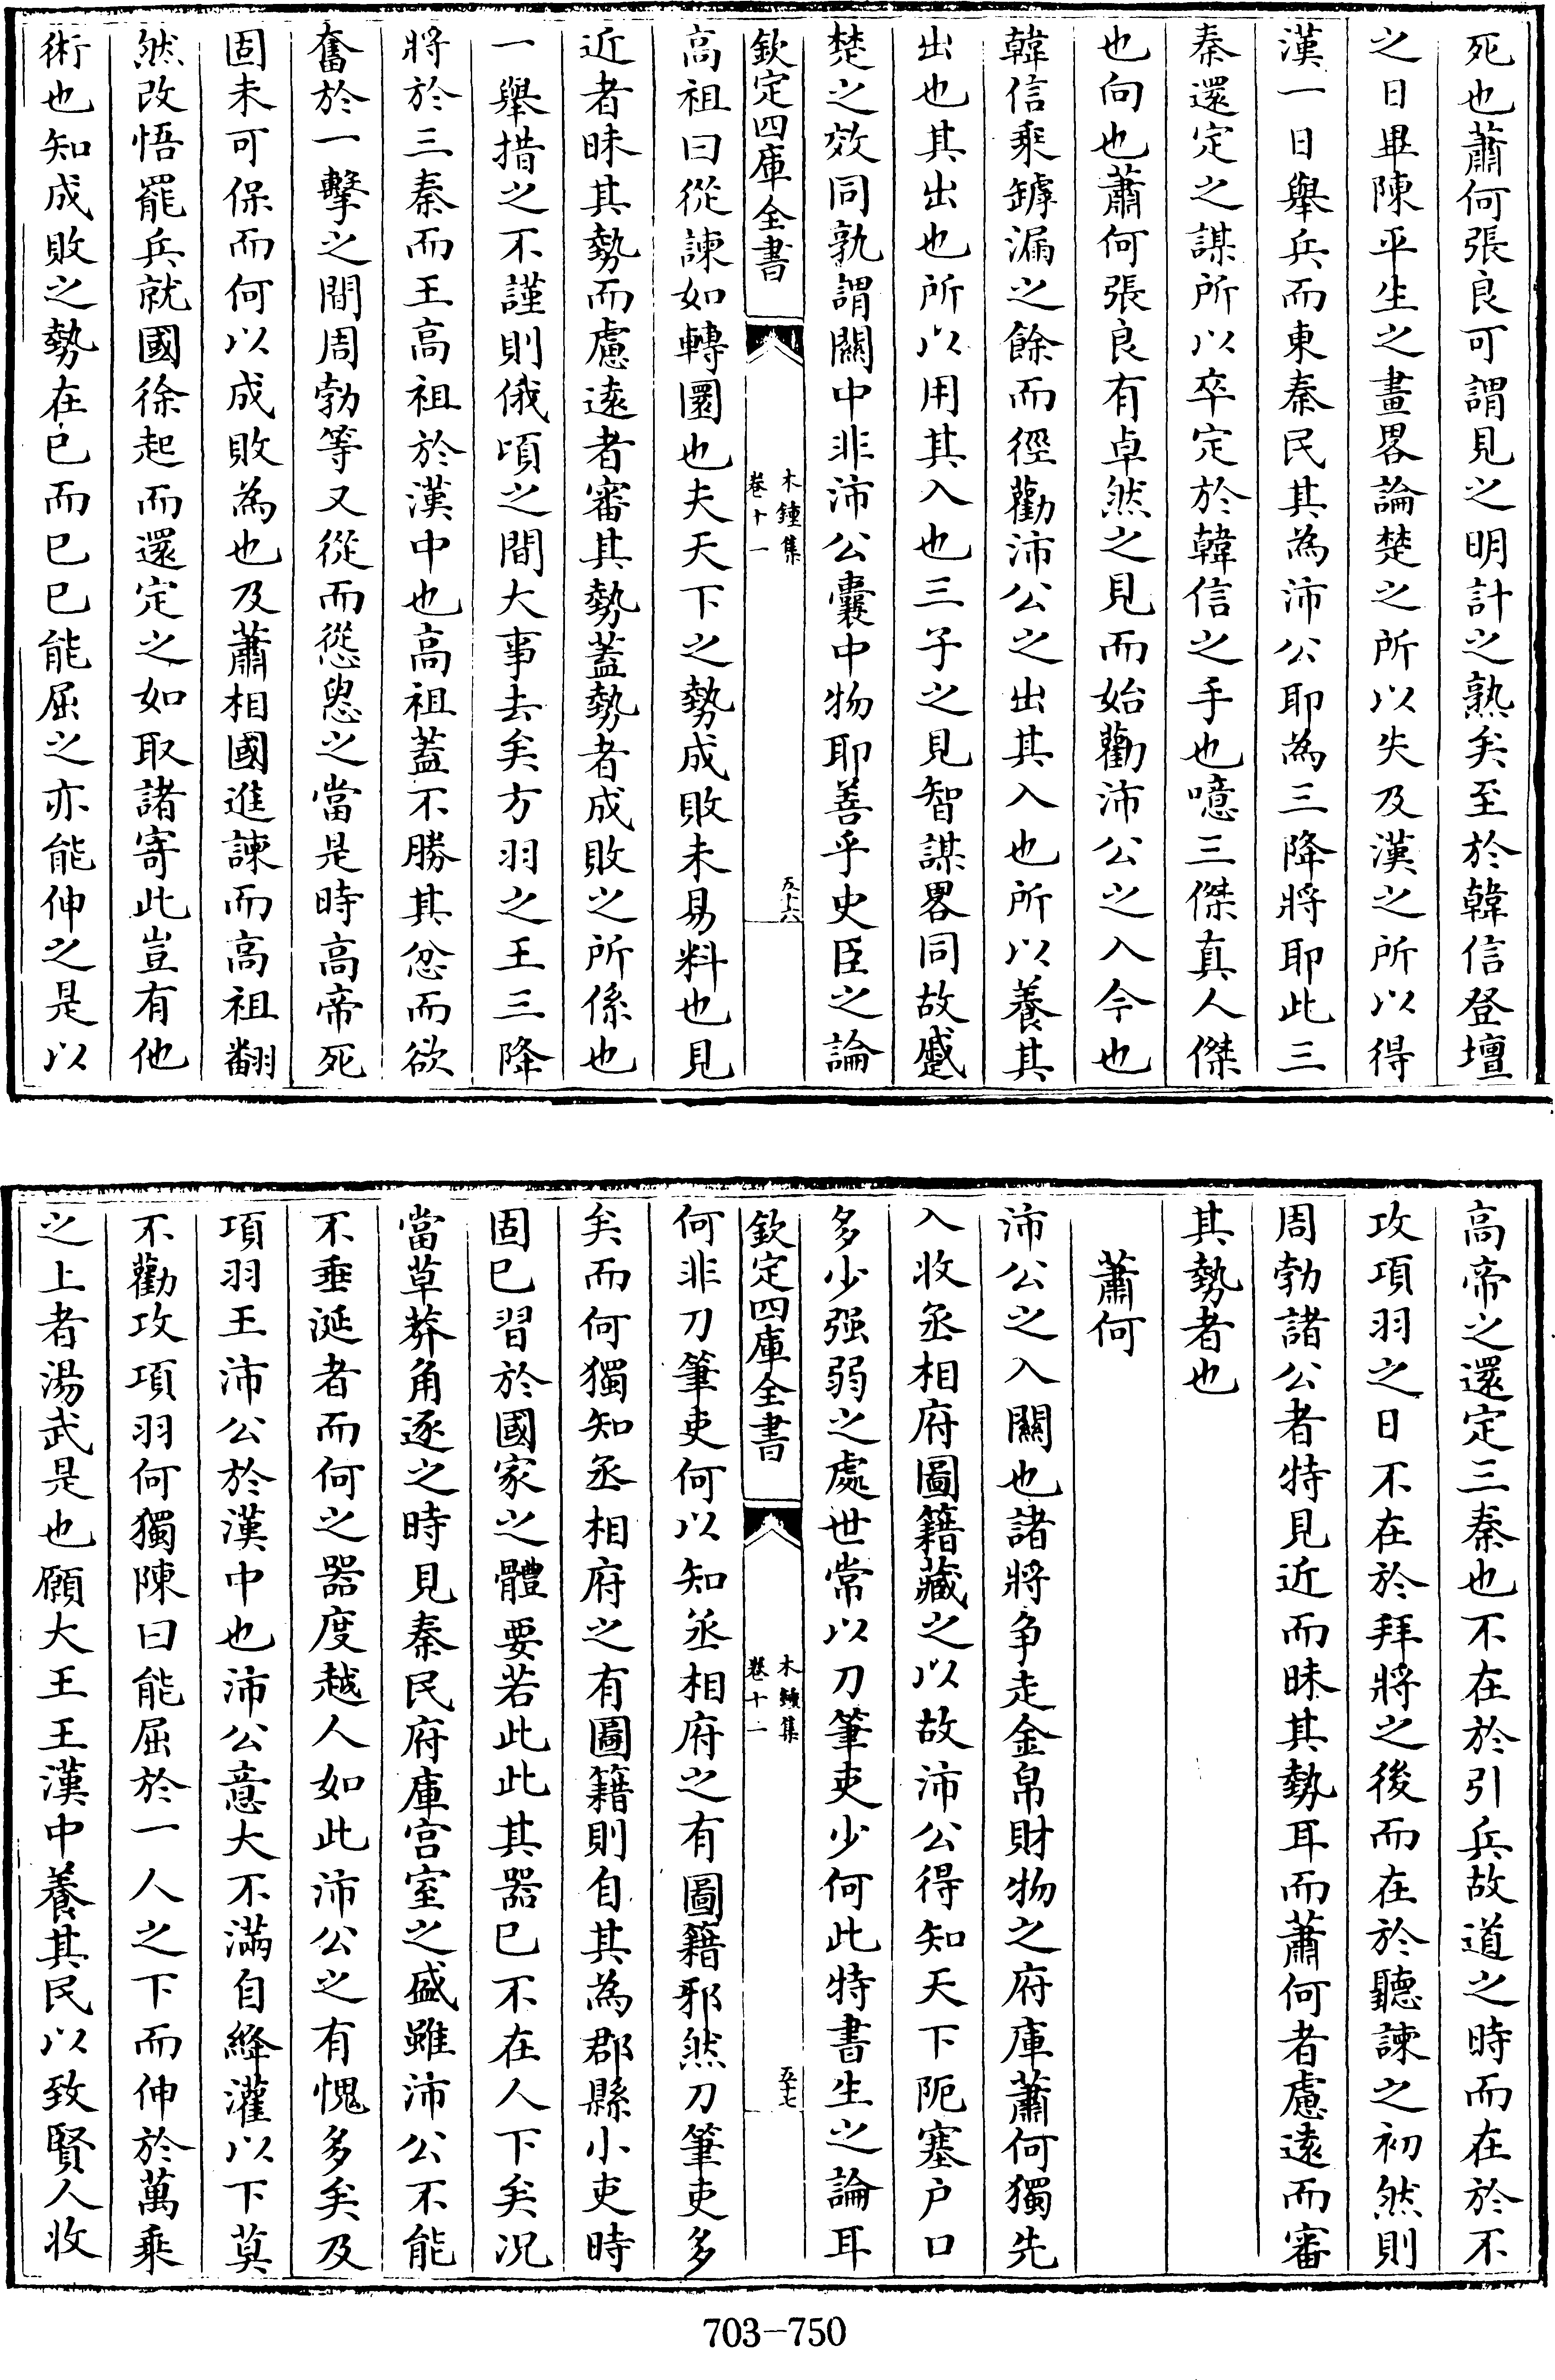 死也蕭何張良可謂見之明計之熟矣至於韓信登壇
之日畢陳平生之畫畧論楚之所以失及漢之所以得
漢一日舉兵而東秦民其為沛公耶為三降將耶此三
秦還定之謀所以卒定於韓信之手也噫三傑真人傑
也向也蕭何張良有卓然之見而始勸沛公之入今也
韓信乘罅漏之餘而徑勸沛公之出其入也所以養其
出也其出也所以用其入也三子之見智謀畧同故蹙
楚之效同孰謂關中非沛公囊中物耶善乎史臣之論
欽定四庫全書
木鍾集
卷十一
五十六
高祖曰從諫如轉圜也夫天下之勢成敗未易料也見
近者昧其勢而慮遠者審其勢蓋勢者成敗之所係也
一舉措之不謹則俄頃之間大事去矣方羽之王三降
將於三秦而王高祖於漢中也高祖蓋不勝其忿而欲
奮於一擊之間周勃等又從而慫恿之當是時高帝死
固未可保而何以成敗為也及蕭相國進諫而高祖翻
然改悟罷兵就國徐起而還定之如取諸寄此豈有他
術也知成敗之勢在已而已已能屈之亦能伸之是以
高帝之還定三秦也不在於引兵故道之時而在於不
攻項羽之日不在於拜將之後而在於聽諫之初然則
周勃諸公者特見近而昧其勢耳而蕭何者慮遠而審
其勢者也
蕭何
沛公之入關也諸將争走金帛財物之府庫蕭何獨先
入收丞相府圖籍藏之以故沛公得知天下阨塞户口
多少强弱之處世常以刀筆吏少何此特書生之論耳
欽定四庫全書
木鍾集
卷十一
五十七
何非刀筆吏何以知丞相府之有圖籍邪然刀筆吏多
矣而何獨知丞相府之有圖籍則自其為郡縣小吏時
固已習於國家之體要若此此其器已不在人下矣况
當草莽角逐之時見秦民府庫宫室之盛雖沛公不能
不垂涎者而何之器度越人如此沛公之有愧多矣及
項羽王沛公於漢中也沛公意大不滿自絳灌以下莫
不勸攻項羽何獨陳曰能屈於一人之下而伸於萬乘
之上者湯武是也願大王王漢中養其民以致賢人收
703-750